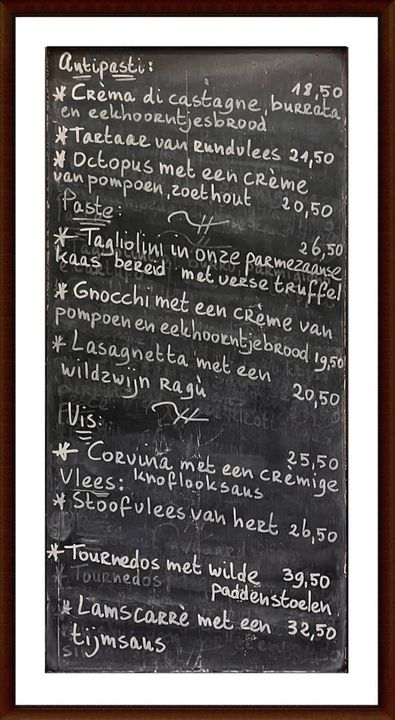 Antipasti:
18,50
* Crèma di castagne, burrata
en eekhoorntjesbrood
* Tartaar van rundvlees 21,50
* Octopus met een crème
van pompoen, zoethout 20,50
Paste:
26,50
* Tagliolini in onze parmezaanse
kaas bereid met verse truffel
* Gnocchi met een crème van
pompoen en eekhoorntjebrood 19,50
* Lasagnetta met een
wildzwijn ragù 20,50
Vis:
25,50
* Corvina met een crèmige
knoflooksaus
Vlees:
* Stoofvlees van hert 26,50
* Tournedos met wilde 39,50
paddenstoelen
* Tournedos
* Lamscarrè met een 32,50
tijmsaus